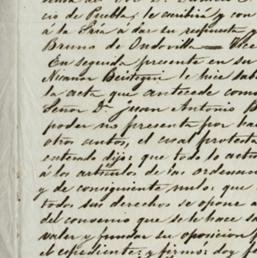 cio de Puebla, le cambirá y con
á la Sria á dar su respuesta y
Bruno de Ondovilla — Vice
En seguida presente en su
Nicanor Béistegui le hice sab
la acta que antecede como
Señor Dn Juan Antonio B
poder no presenta por hac
otros autos, el cual protesta
enterado dijo: que todo lo actu
á los artículos de las ordenan
y de consiguiente nulo: que
todos sus derechos se opone a
del convenio que se le hace sa
valer y fundar su oposicion f
el espediente; y firmó: doy f